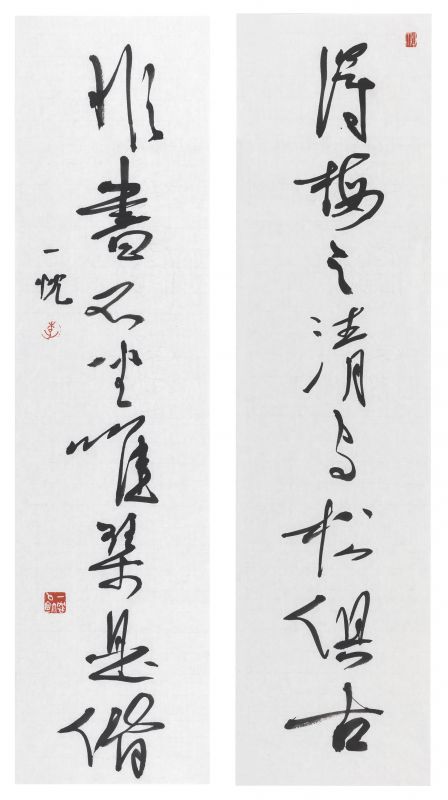 得梅之清与松俱古
非書不坐唯琴是偕
一悦
李